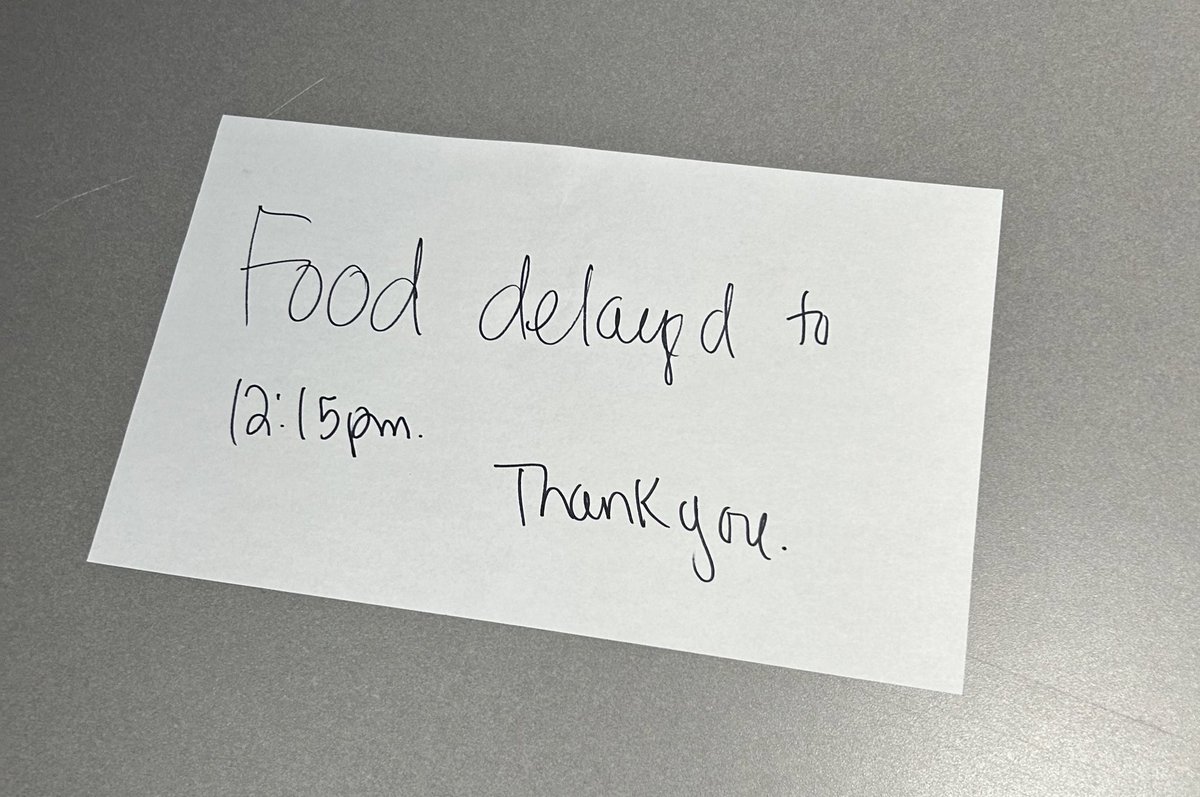 Food delayed to
12:15pm.
Thank you.